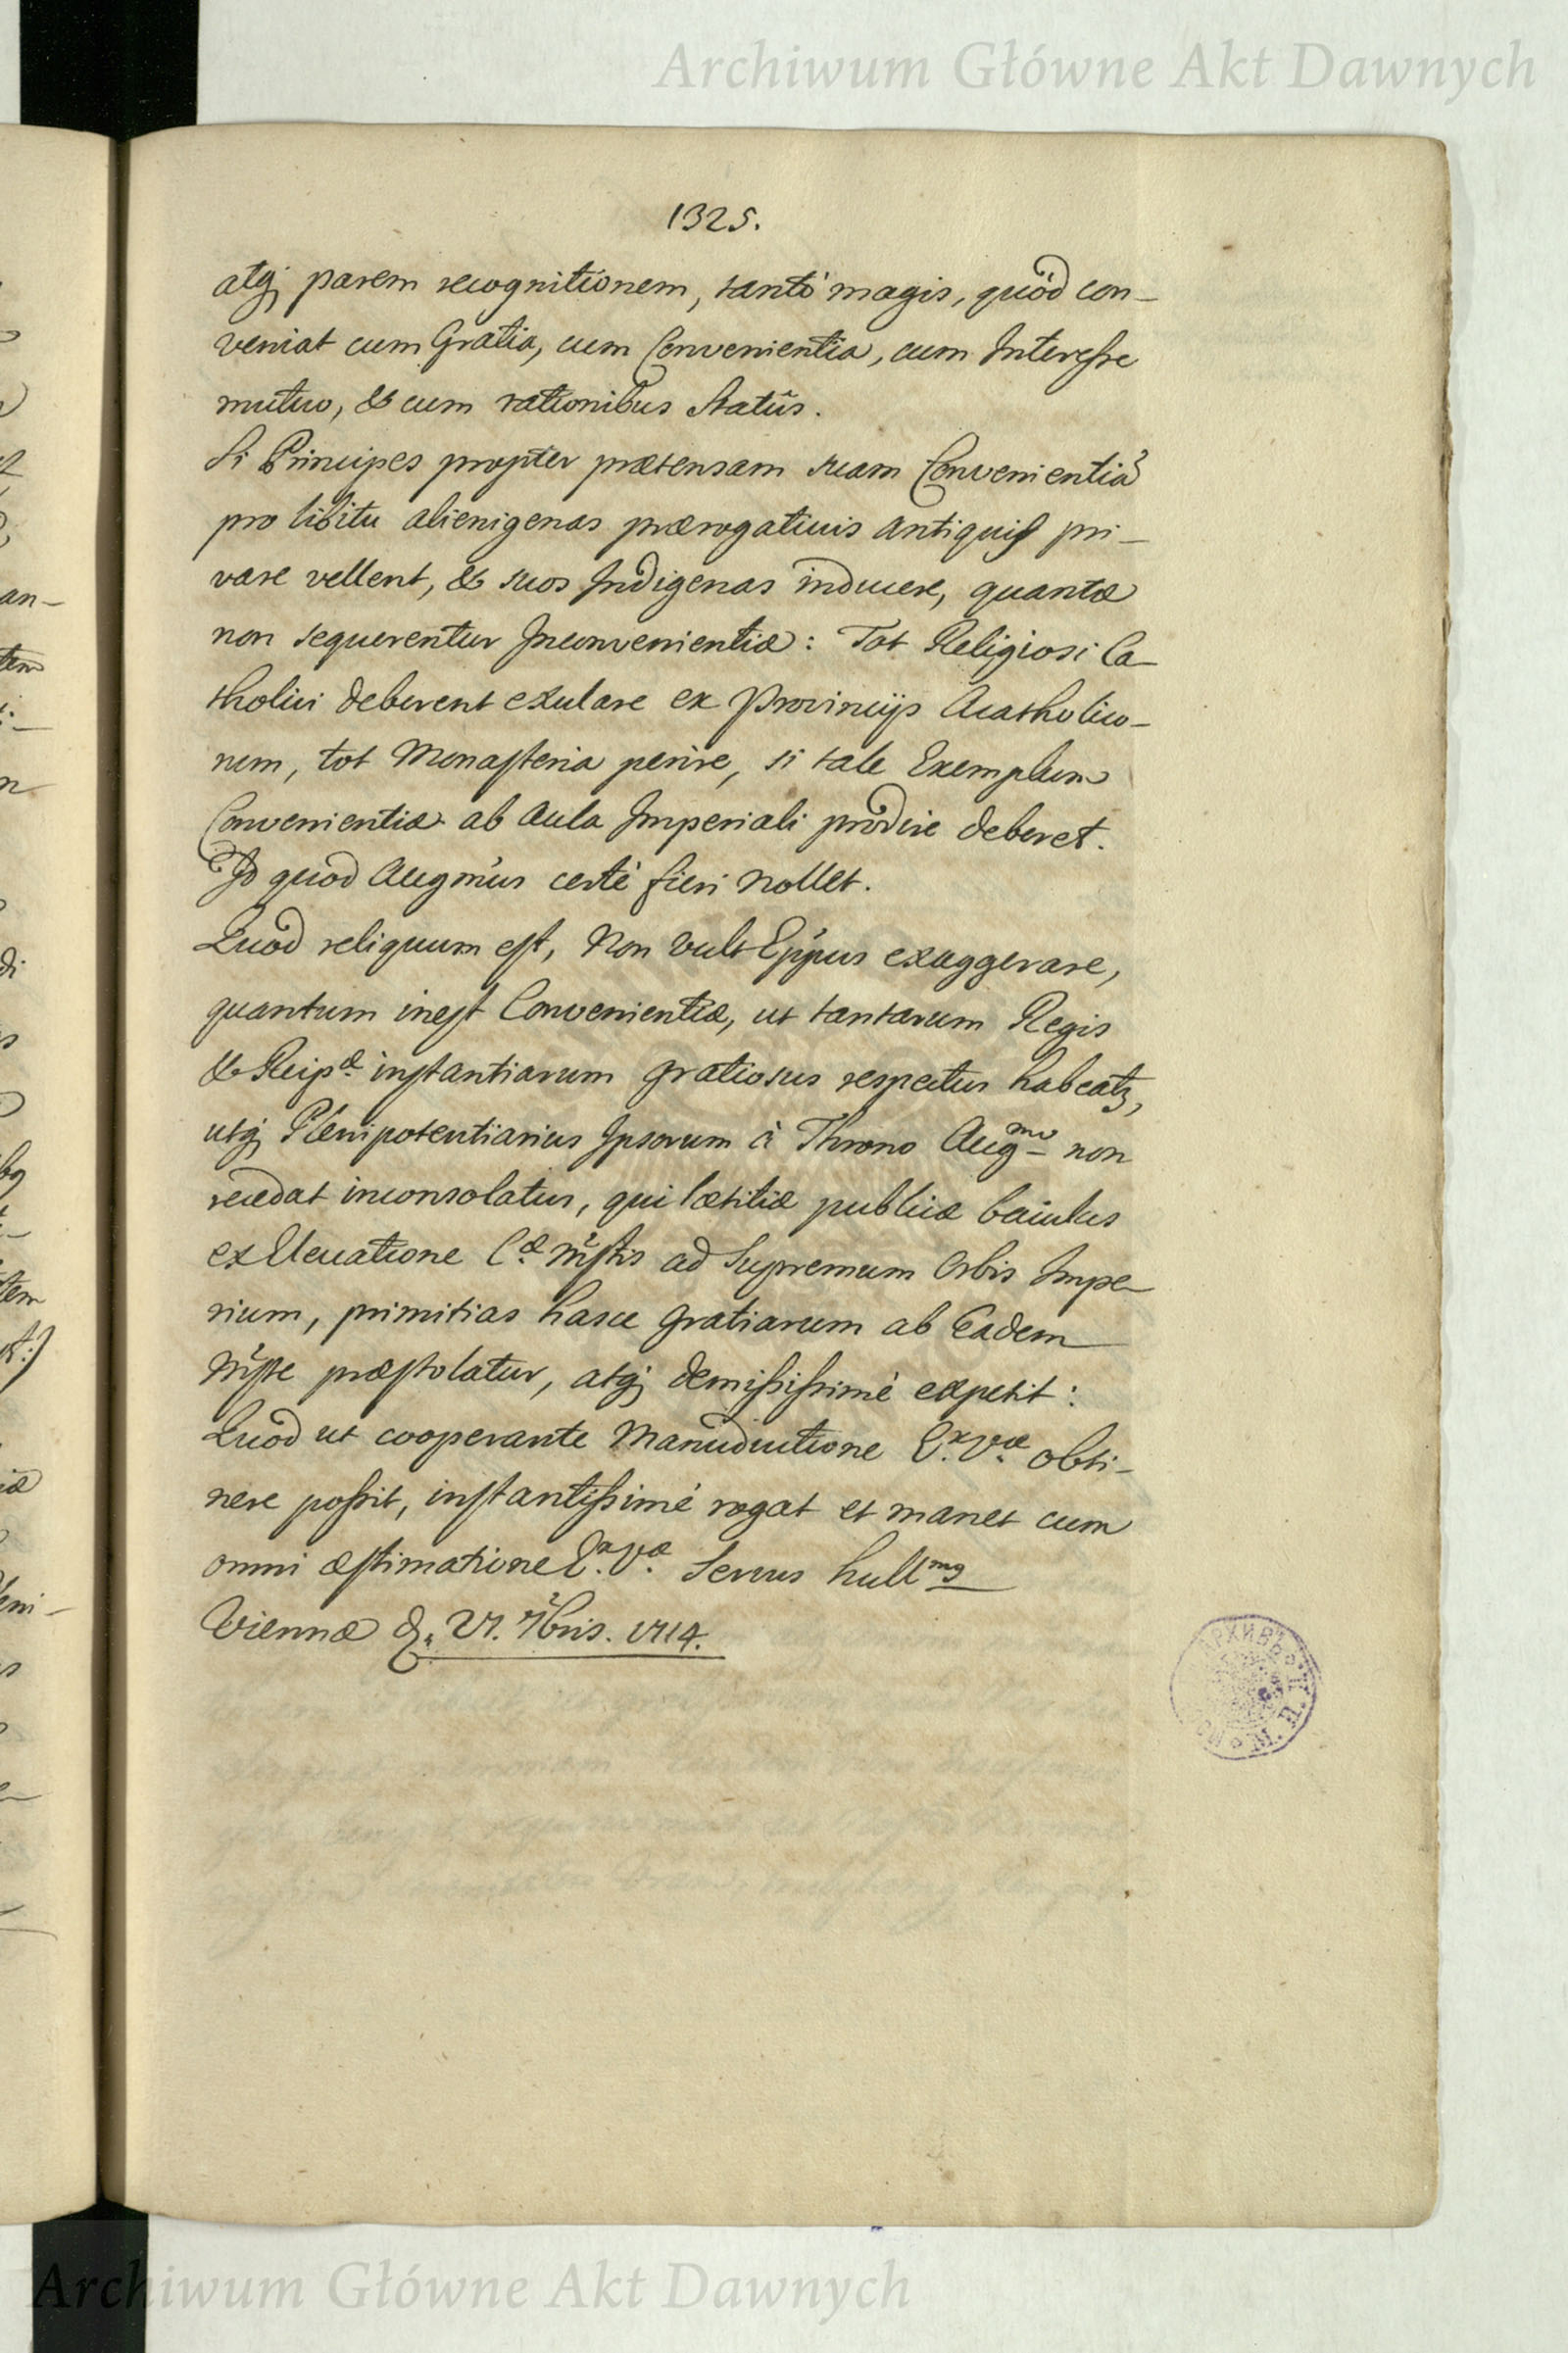 Archiwum Główne Akt Dawnych
1325.
atqꝫ parem recognitionem, tantò magis, quòd con-
veniat cum Gratia, cum Convenientia, cum Interesse
mutuo, & cum rationibus Statûs.
Si Principes propter prætensam suam Convenientiã
pro libitu alienigenas prærogativis antiquis pri-
vare vellent, & suos Indigenas inducere, quantæ
non sequerentur Inconvenientiæ: Tot Religiosi Ca-
tholici deberent exulare ex Provincijs Acatholico-
rum, tot Monasteria perire, si tale Exemplum
Convenientiæ ab Aula Imperiali prodire deberet.
Id quod Augmus certè fieri nollet.
Quod reliquum est, Non vult Eppus exaggerare,
quantum inest Convenientiæ, ut tantarum Regis
& Reipæ instantiarum gratiosus respectus habeatꝫ,
utqꝫ Plenipotentiarius Ipsorum à Throno Augmo non
recedat inconsolatus, qui lætitiæ publicæ baiulus
ex Elevatione Cæ Mstis ad Supremum Orbis Impe-
rium, primitias hasce gratiarum ab Eadem
Mste præstolatur, atqꝫ demississimè expetit:
Quod ut cooperante Manuductione Ex. Væ. obti-
nere possit, instantissimè rogat et manet cum
omni æstimatione Ex. Væ. Servus hullmg
Viennæ d. 21. 7bris. 1714.
АРХИВЪ
Archiwum Główne Akt Dawnych